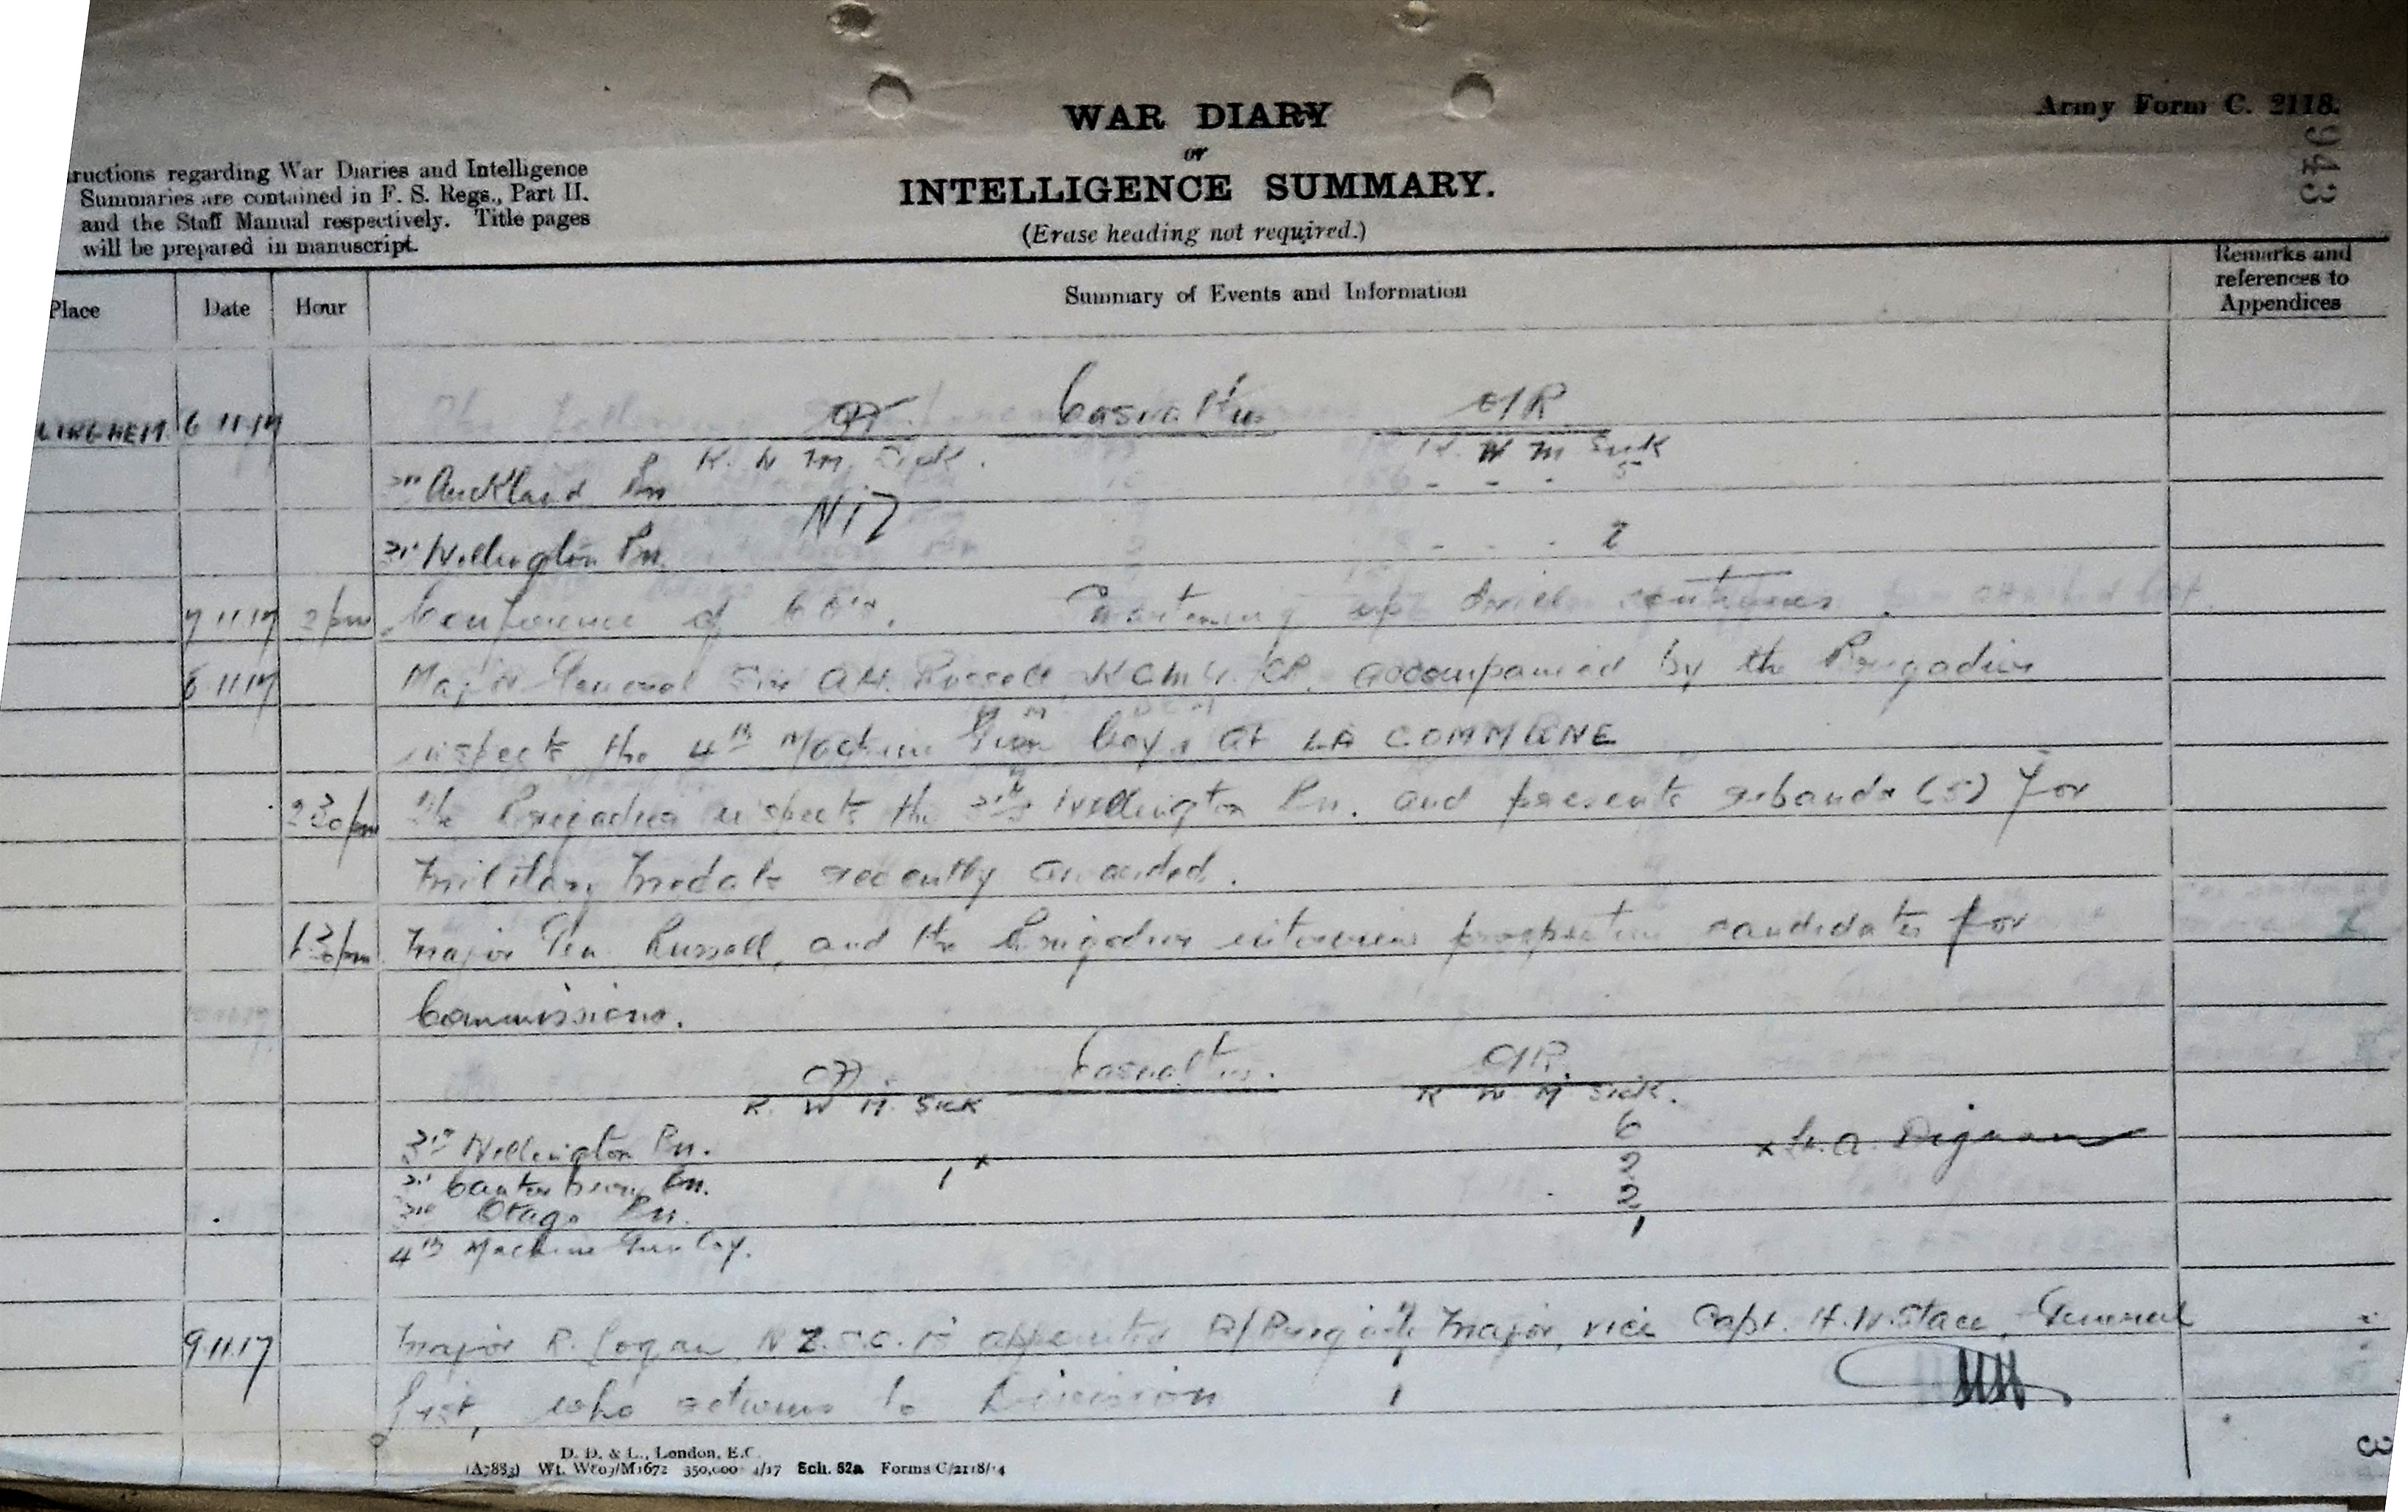 WAR DIARY
Army Form C. 2118.
or
943
INTELLIGENCE SUMMARY.
(Erase heading not required.)
ructions regarding War Diaries and Intelligence
Summaries are contained in F. S. Regs., Part II.
and the Staff Manual respectively. Title pages
will be prepared in manuscript.
Place Date Hour Summary of Events and Information Remarks and references to Appendices
6 11 17 Casualties O/R
K. W M. Sick. K W M Sick
3rd Auckland Bn - - - 5
Nil
3rd Wellington Bn. - - - 2
7 11 17 2 pm Conference of COs. up drill continues.
8 11 17 Major General Sir A.H. Russell, KCMG. CB. accompanied by the Brigadier
inspects the 4th Machine Gun Coy. at LA COMMUNE
2 30 pm The Brigadier inspects the 3rd Wellington Bn. and presents ribands (5) for
Military Medals recently awarded.
1 30 pm Major Gen. Russell, and the Brigadier interview prospective candidates for
Commissions.
Casualties. O/R.
K. W M. Sick K W M Sick.
3rd Wellington Bn. 6 x Lt. A. Dignan
3rd Canterbury Bn. 1 x 2
3rd Otago Bn. 2
4th Machine Gun Coy. 1
9.11.17 Major R. Logan N.Z.S.C. is appointed Brigade Major, vice Capt. H.N. Stace, General
list, who returns to Division
D. D. & L., London, E.C.
(A7883) Wt. W809/M1672 350,000 4/17 Sch. 52a Forms C/2118/14
3